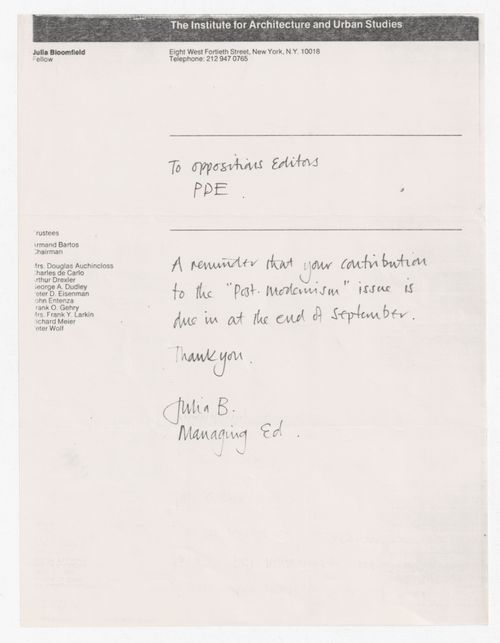 The Institute for Architecture and Urban Studies
Julia Bloomfield
Fellow
Eight West Fortieth Street, New York, N.Y. 10018
Telephone: 212 947 0765
To oppositions Editors
PDE.
rustees
rmand Bartos
hairman
rs. Douglas Auchincloss
harles de Carlo
rthur Drexler
eorge A. Dudley
eter D. Eisenman
ohn Entenza
rank O. Gehry
rs. Frank Y. Larkin
ichard Meier
eter Wolf
A reminder that your contribution
to the "Post. Modernism" issue is
due in at the end of September.
Thank you.
Julia B.
Managing Ed.